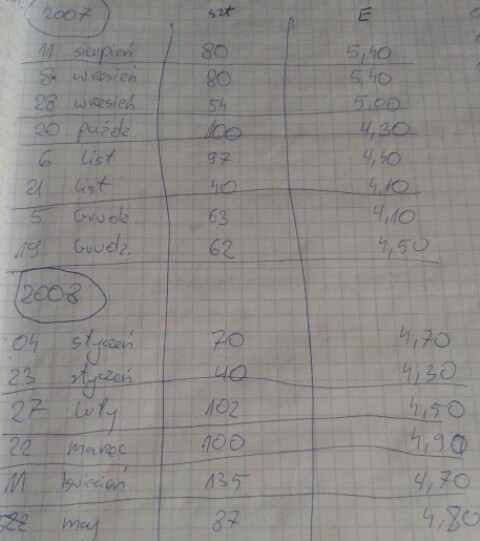 2007 szt E
11 sierpień 80 5,40
8 wrzesień 80 5,40
28 wrzesień 54 5,00
20 paźdz. 100 4,30
6 List 97 4,40
21 List 40 4,10
5 Grudz. 63 4,10
19 Grudz. 62 4,50
2008
04 styczeń 70 4,70
23 styczeń 40 4,30
27 Luty 102 4,50
22 marzec 100 4,90
11 kwiecień 135 4,70
22 maj 87 4,80